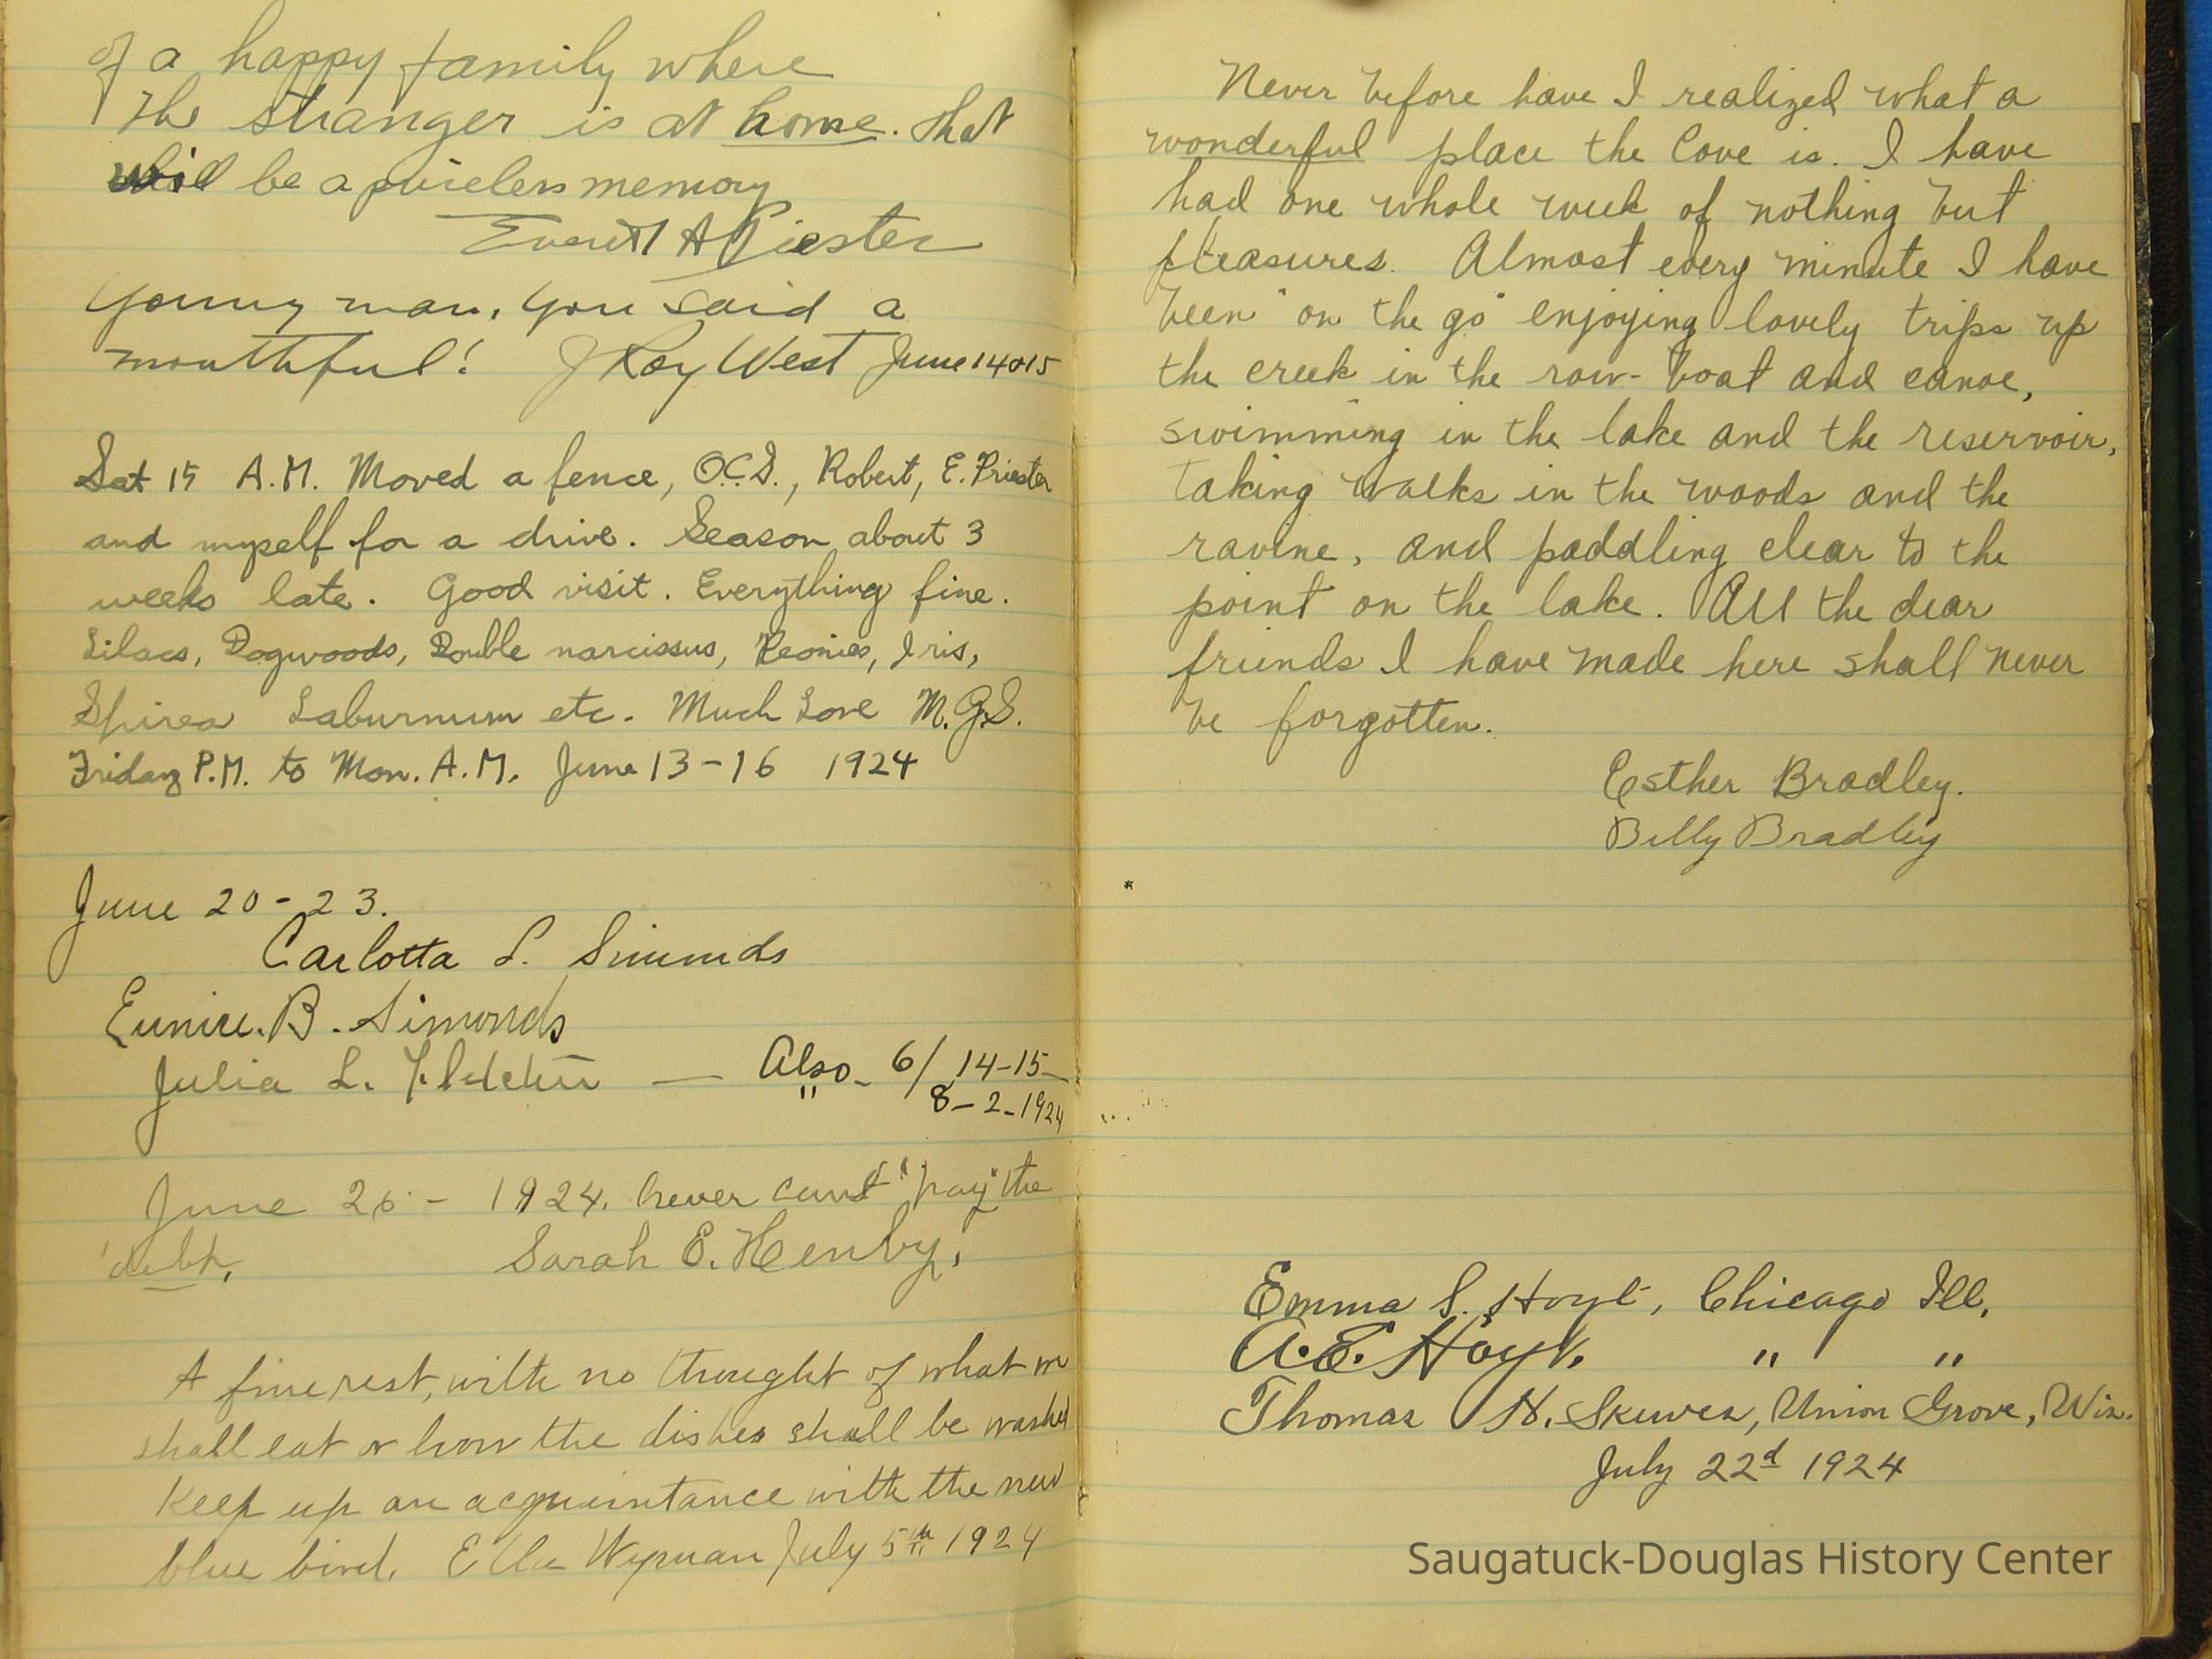 of a happy family where
the stranger is at home. that
will be a priceless memory
Everett A Piester
Young man, you said a
mouthful! J Roy West June 14 & 15
Sat 15 A.M. Moved a fence, O.C.S., Robert, E. Priester
and myself for a drive. Season about 3
weeks late. Good visit. Everything fine.
Lilacs, Dogwoods, Double narcissus, Peonies, Iris,
Spirea Laburnum etc. Much Love M.G.S.
Friday P.M. to Mon. A.M. June 13-16 1924
June 20-23.
Carlotta L. Simonds
Eunice. B. Simonds
Julia L. — Also - 6/ 14-15-
" 8-2-1924
June 26 - 1924. never can't "pay" the
debt. Sarah E. Henby.
A fine rest, with no thought of what we
shall eat or how the dishes shall be washed
Keep up an acquaintance with the new
blue bird. Ella Wyman July 5th 1924
Never before have I realized what a
wonderful place the Cove is. I have
had one whole week of nothing but
pleasures. Almost every minute I have
been "on the go" enjoying lovely trips up
the creek in the row-boat and canoe,
swimming in the lake and the reservoir,
taking walks in the woods and the
ravine, and paddling clear to the
point on the lake. All the dear
friends I have made here shall never
be forgotten.
Esther Bradley.
Billy Bradley
Emma S. Hoyt, Chicago Ill.
A. E. Hoyt. " "
Thomas H. Skewes, Union Grove, Wis.
July 22d 1924
Saugatuck-Douglas History Center